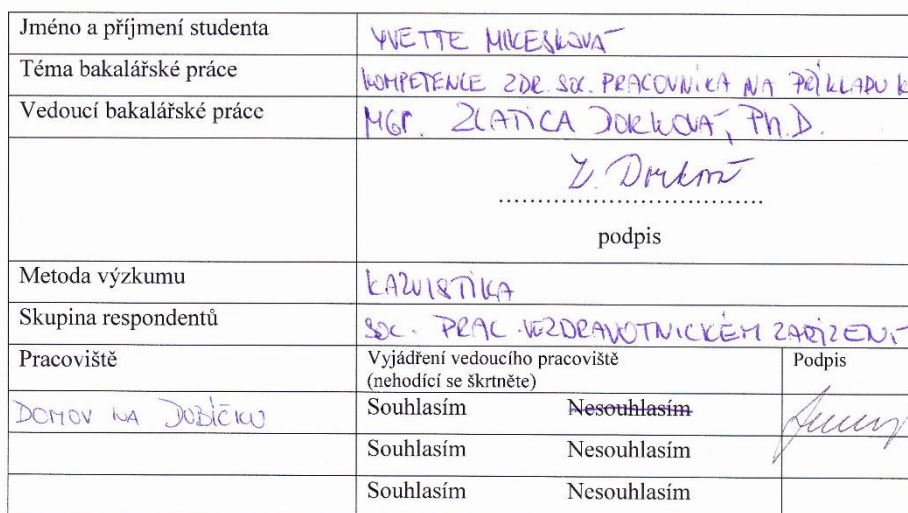 Jméno a příjmení studenta YVETTE MIKESKOVÁ
Téma bakalářské práce KOMPETENCE ZDR. SOC. PRACOVNÍKA NA PŘÍKLADU K
Vedoucí bakalářské práce MGR. ZLATICA DORKOVÁ, Ph.D.
Z. Dorková
podpis
Metoda výzkumu KAZUISTIKA
Skupina respondentů SOC. PRAC. VE ZDRAVOTNICKÉM ZAŘÍZENÍ
Pracoviště Vyjádření vedoucího pracoviště Podpis
(nehodící se škrtněte)
DOMOV NA DUBÍČKU Souhlasím Nesouhlasím
Souhlasím Nesouhlasím
Souhlasím Nesouhlasím